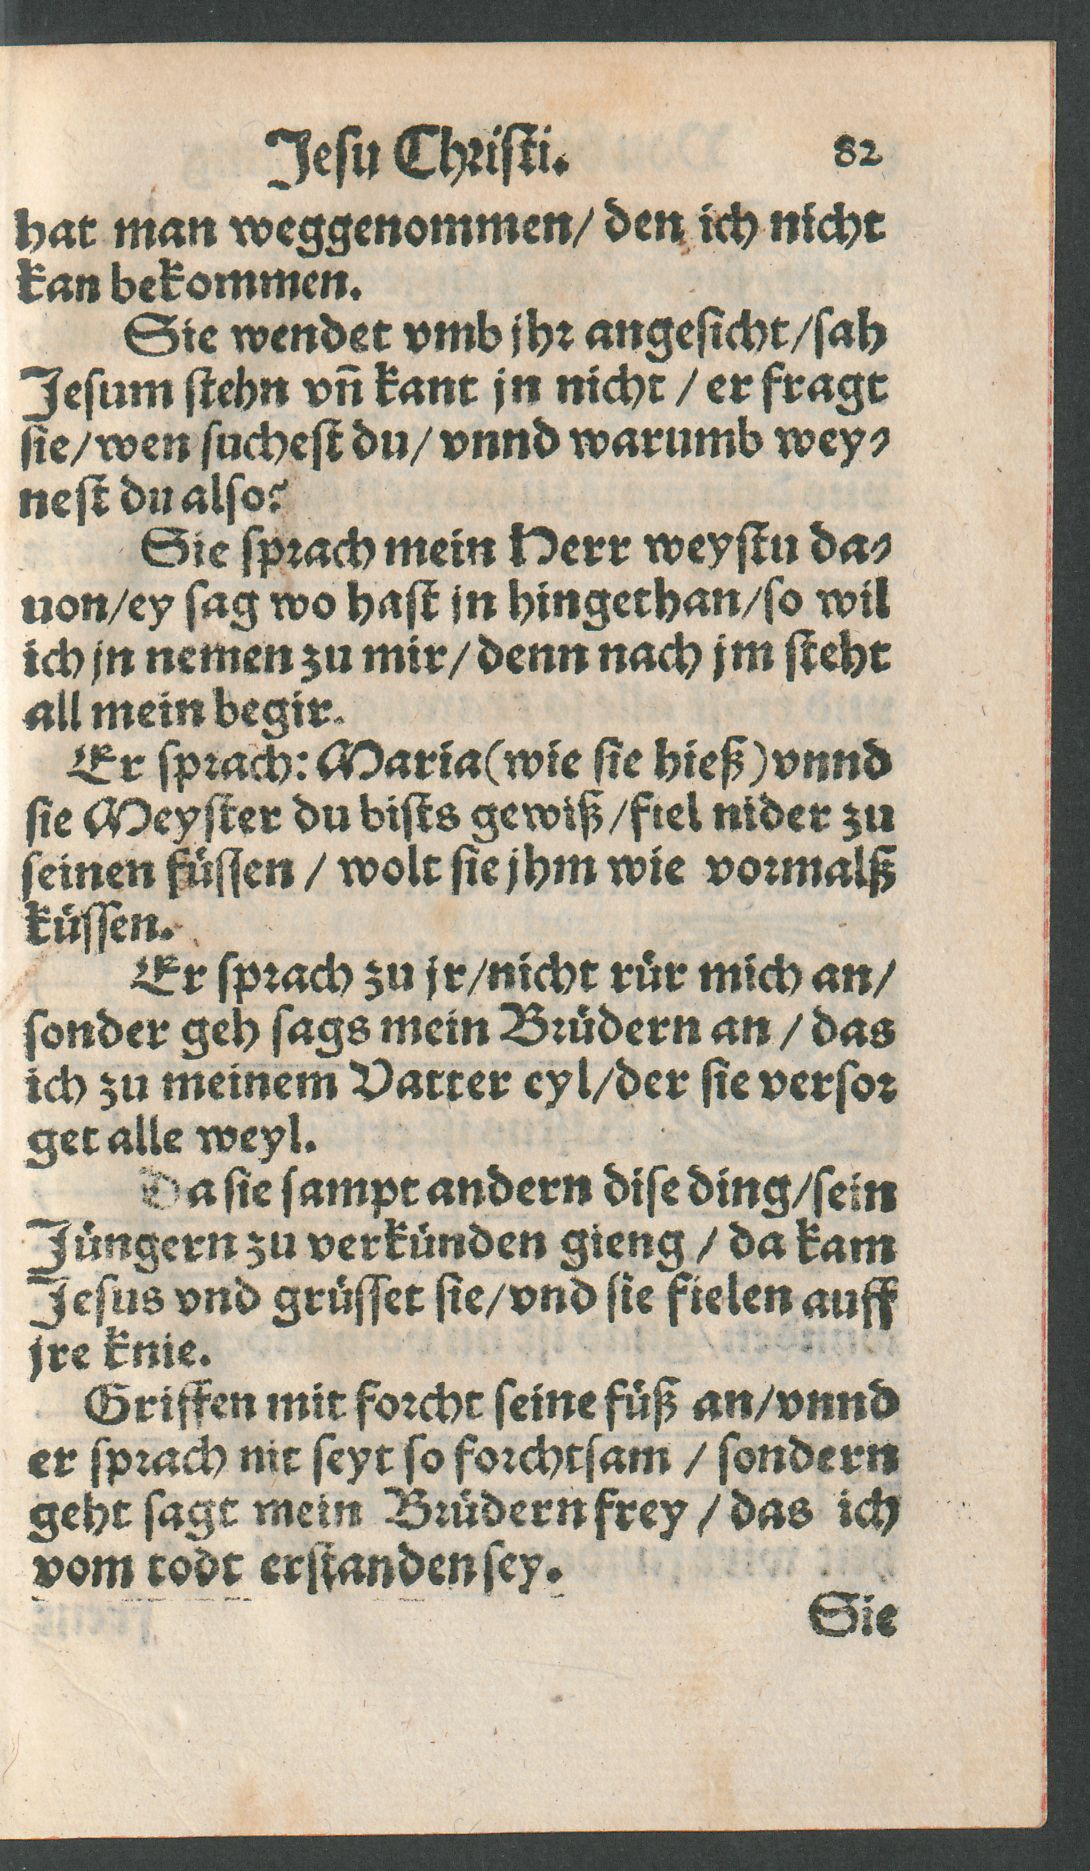 Jesu Christi. 82
hat man weggenommen/ den ich nicht
kan bekommen.
Sie wendet vmb jhr angesicht/sah
Jesum stehn vñ kant jn nicht / er fragt
sie/wen suchest du/ vnnd warumb wey⸗
nest du also?
Sie sprach mein Herr weystu da⸗
uon/ey sag wo hast jn hingethan/so wil
ich jn nemen zu mir/ denn nach jm steht
all mein begir.
Er sprach: Maria(wie sie hieß)vnnd
sie Meyster du bists gewiß/fiel nider zu
seinen füssen / wolt sie jhm wie vormalß
küssen.
Er sprach zu jr/nicht rür mich an/
sonder geh sags mein Brüdern an / das
ich zu meinem Vatter eyl/der sie versor
get alle weyl.
Da sie sampt andern dise ding/sein
Jüngern zu verkünden gieng / da kam
Jesus vnd grüsset sie/vnd sie fielen auff
jre knie.
Griffen mit forcht seine füß an/vnnd
er sprach nit seyt so forchtsam / sondern
geht sagt mein Brüdern frey / das ich
vom todt erstanden sey.
Sie